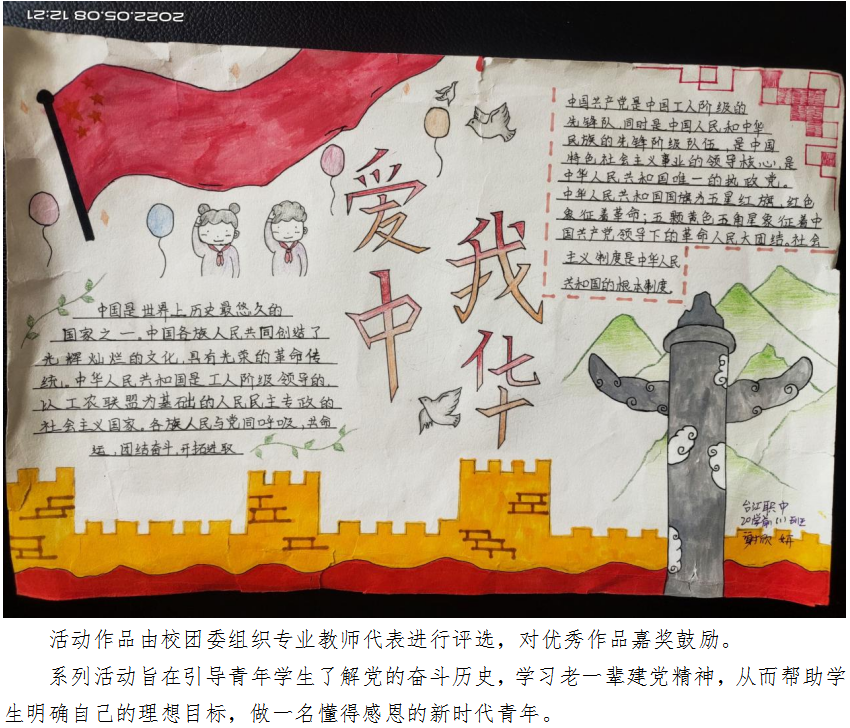 2022.05.08 12:21
爱我
中华
中国共产党是中国工人阶级的
先锋队,同时是中国人民和中华
民族的先锋阶级队伍,是中国
特色社会主义事业的领导核心,是
中华人民共和国唯一的执政党。
中华人民共和国国旗为五星红旗,红色
象征着革命;五颗黄色五角星象征着中
国共产党领导下的革命人民大团结。社会
主义制度是中华人民
共和国的根本制度,
中国是世界上历史最悠久的
国家之一。中国各族人民共同创造了
光辉灿烂的文化,具有光荣的革命传
统,中华人民共和国是工人阶级领导的,
以工农联盟为基础的人民民主专政的
社会主义国家,各族人民与党同呼吸,共命
运,团结奋斗,开拓进取
台江职中
20学前(1)班
谢欣妍
活动作品由校团委组织专业教师代表进行评选，对优秀作品嘉奖鼓励。
系列活动旨在引导青年学生了解党的奋斗历史，学习老一辈建党精神，从而帮助学
生明确自己的理想目标，做一名懂得感恩的新时代青年。